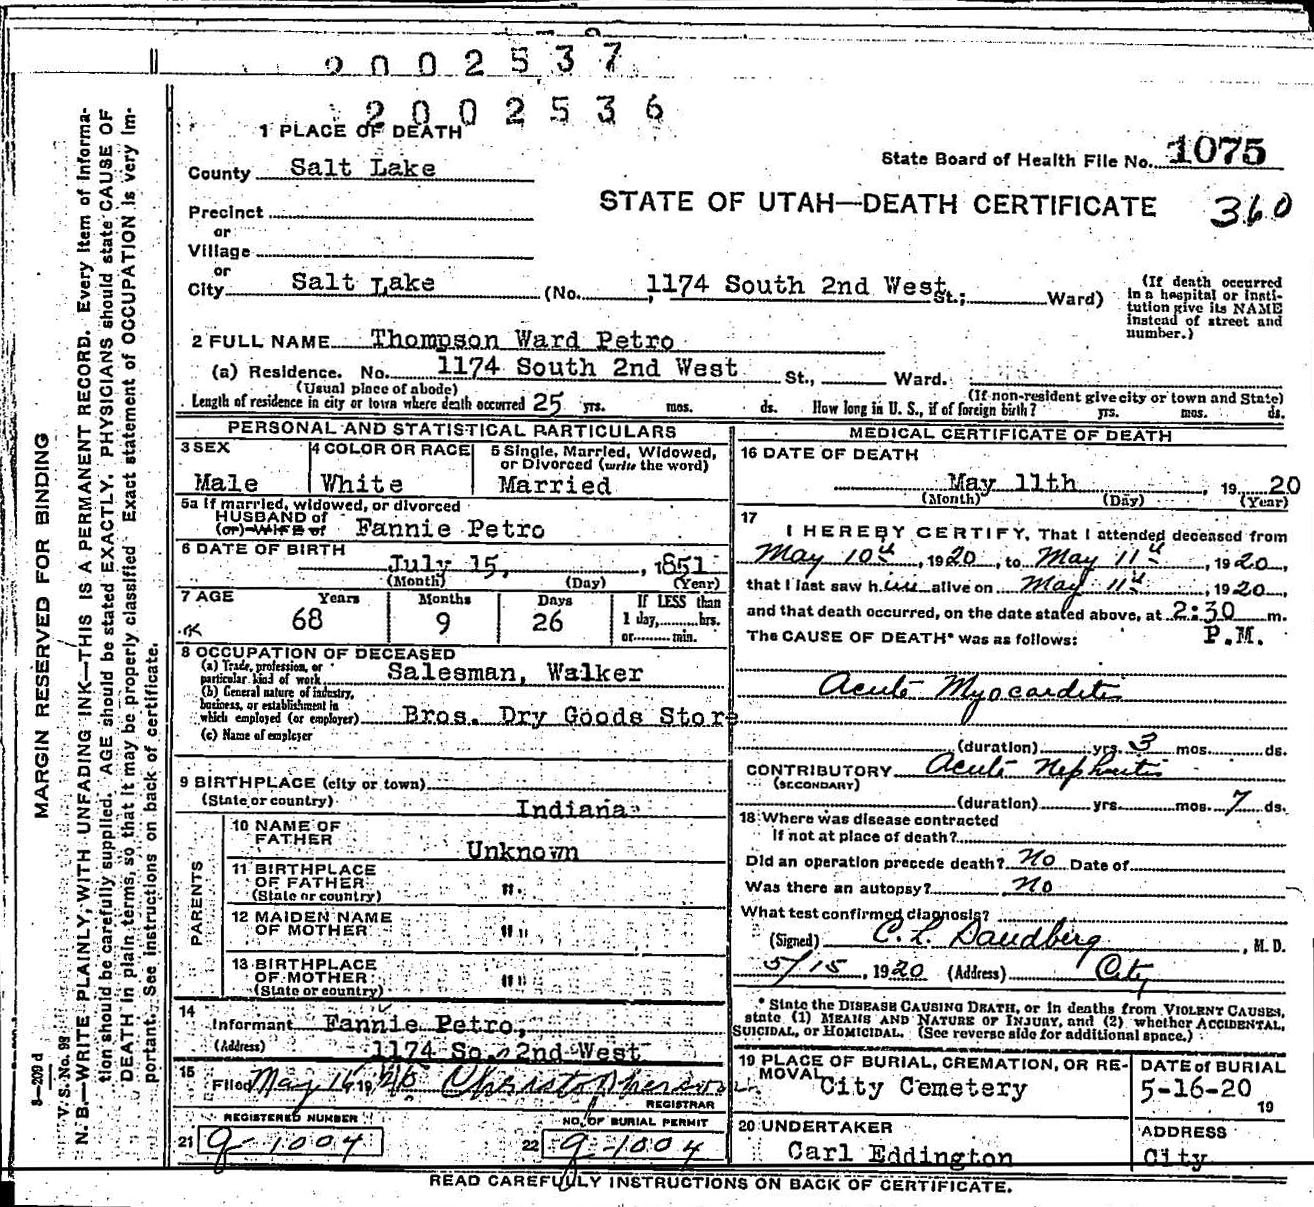 2002537
2002536
1 PLACE OF DEATH
State Board of Health File No. 1075
County Salt Lake
STATE OF UTAH—DEATH CERTIFICATE 360
Precinct
or
Village
or
City Salt Lake (No. 1174 South 2nd West St.; Ward)
(If death occurred in a hospital or insti-
tution give its NAME
instead of street and
number.)
2 FULL NAME Thompson Ward Petro
(a) Residence. No. 1174 South 2nd West St., Ward.
(Usual place of abode) (If non-resident give city or town and State)
Length of residence in city or town where death occurred 25 yrs. mos. ds. How long in U. S., if of foreign birth? yrs. mos. ds.
PERSONAL AND STATISTICAL PARTICULARS
3 SEX
Male
4 COLOR OR RACE
White
5 Single, Married, Widowed,
or Divorced (write the word)
Married
5a If married, widowed, or divorced
HUSBAND of
(or) WIFE of Fannie Petro
6 DATE OF BIRTH
July 15, 1851
(Month) (Day) (Year)
7 AGE Years Months Days If LESS than
68 9 26 1 day, hrs.
or min.
8 OCCUPATION OF DECEASED
(a) Trade, profession, or
particular kind of work Salesman, Walker
(b) General nature of industry,
business, or establishment in
which employed (or employer) Bros. Dry Goods Store
(c) Name of employer
9 BIRTHPLACE (city or town)
(State or country) Indiana
PARENTS
10 NAME OF
FATHER Unknown
11 BIRTHPLACE
OF FATHER "
(State or country)
12 MAIDEN NAME
OF MOTHER "
13 BIRTHPLACE
OF MOTHER "
(State or country)
14
Informant Fannie Petro,
(Address) 1174 So. 2nd West
15
Filed May 16 1920 Christopherson
REGISTRAR
REGISTERED NUMBER
21 G-1004
NO. OF BURIAL PERMIT
22 G-1004
MEDICAL CERTIFICATE OF DEATH
16 DATE OF DEATH
May 11th, 1920
(Month) (Day) (Year)
17
I HEREBY CERTIFY, That I attended deceased from
May 10th, 1920, to May 11th, 1920,
that I last saw him alive on May 11th, 1920,
and that death occurred, on the date stated above, at 2:30 m.
The CAUSE OF DEATH* was as follows: P.M.
Acute Myocarditis
(duration) yrs. 3 mos. ds.
CONTRIBUTORY Acute Nephritis
(SECONDARY)
(duration) yrs. mos. 7 ds.
18 Where was disease contracted
if not at place of death?
Did an operation precede death? No Date of
Was there an autopsy? No
What test confirmed diagnosis?
(Signed) C. L. Sandberg, M. D.
5/15, 1920 (Address) City
* State the DISEASE CAUSING DEATH, or in deaths from VIOLENT CAUSES,
state (1) MEANS AND NATURE OF INJURY, and (2) whether ACCIDENTAL,
SUICIDAL, or HOMICIDAL. (See reverse side for additional space.)
19 PLACE OF BURIAL, CREMATION, OR RE-
MOVAL City Cemetery
DATE of BURIAL
5-16-20
19
20 UNDERTAKER
Carl Eddington
ADDRESS
City
READ CAREFULLY INSTRUCTIONS ON BACK OF CERTIFICATE.
MARGIN RESERVED FOR BINDING
N. B.—WRITE PLAINLY, WITH UNFADING INK—THIS IS A PERMANENT RECORD. Every item of informa-
tion should be carefully supplied. AGE should be stated EXACTLY. PHYSICIANS should state CAUSE OF
DEATH in plain terms, so that it may be properly classified. Exact statement of OCCUPATION is very im-
portant. See instructions on back of certificate.
V. S. No. 98